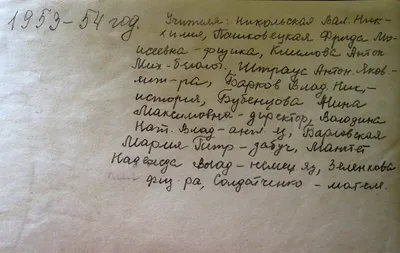 1953-54 год.
Учителя: Никольская Вал. Ник-
химия, Пашковецкая Фрида Мо-
исеевна - физика, Климова Антон
Мих - биолог., Штраус Антон. Яков -
лит-ра, Барков Влад. Ник, -
история, Бубенцова Нина
Максимовна - директор, Володина
Нат. Влад - англ. яз, Барловская
Мария Петр - завуч, Мантет
Надежда Влад - немец. яз, Зеленкова
физ-ра, Солдатченко - матем.